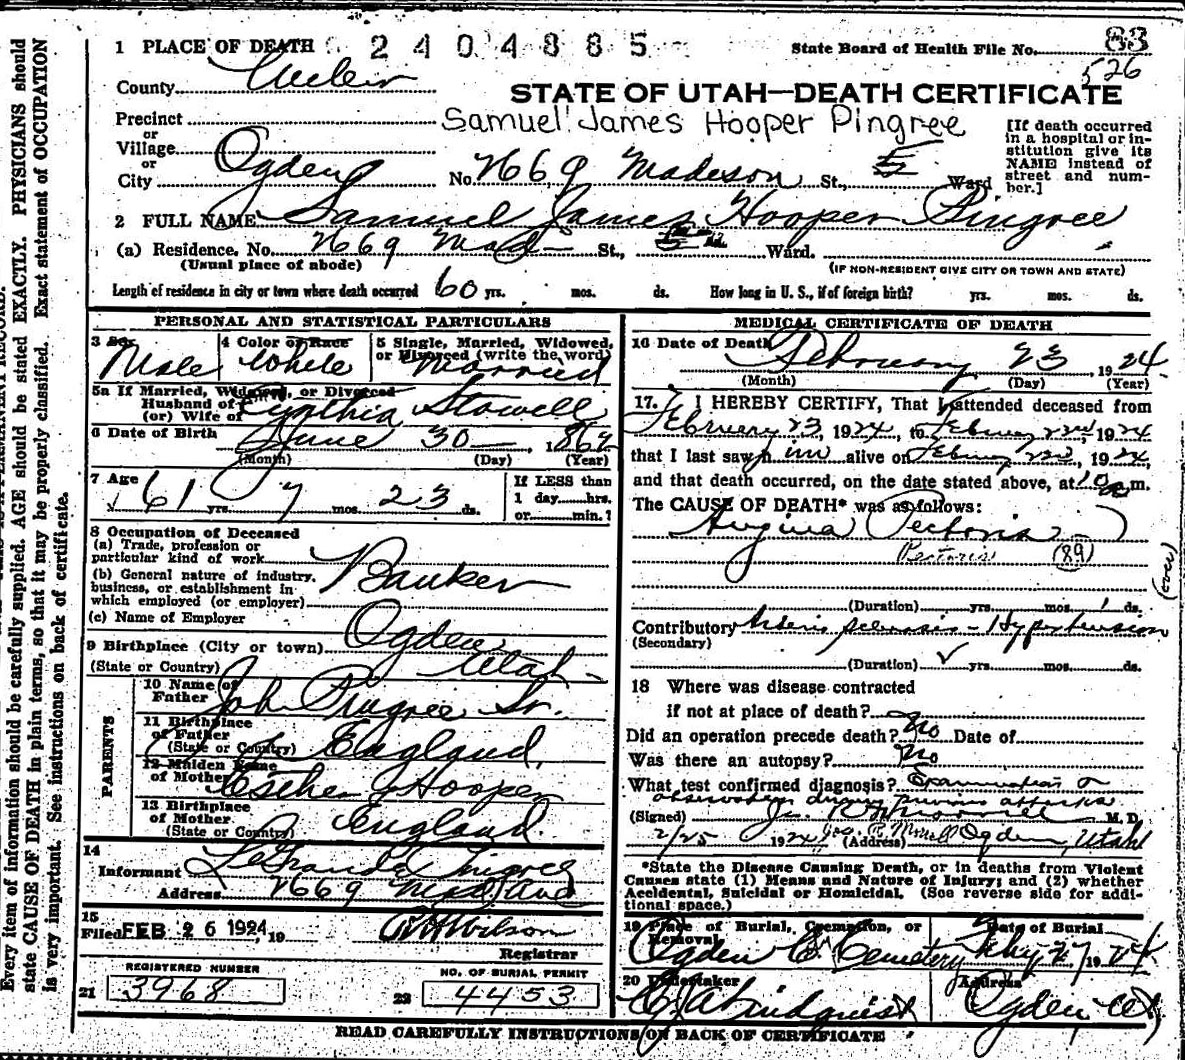 1 PLACE OF DEATH 2404885
State Board of Health File No. 83
526
County Weber
STATE OF UTAH—DEATH CERTIFICATE
Precinct
Samuel James Hooper Pingree
or
Village
or
City Ogden No. 2669 Madison St., 5 Ward
[If death occurred
in a hospital or in-
stitution give its
NAME instead of
street and num-
ber.]
2 FULL NAME Samuel James Hooper Pingree
(a) Residence. No. 2669 Mad— St., 5 Ward.
(Usual place of abode)
(IF NON-RESIDENT GIVE CITY OR TOWN AND STATE)
Length of residence in city or town where death occurred 60 yrs. mos. ds. How long in U. S., if of foreign birth? yrs. mos. ds.
PERSONAL AND STATISTICAL PARTICULARS
3 Sex Male
4 Color or Race White
5 Single, Married, Widowed,
or Divorced (write the word)
Married
5a If Married, Widowed, or Divorced
Husband of
(or) Wife of Cynthia Stowell
6 Date of Birth June 30—, 1862
(Month) (Day) (Year)
7 Age 61 yrs. 7 mos. 23 ds.
If LESS than
1 day......hrs.
or......min.?
8 Occupation of Deceased
(a) Trade, profession or
particular kind of work
Banker
(b) General nature of industry,
business, or establishment in
which employed (or employer)
(c) Name of Employer
9 Birthplace (City or town) Ogden
(State or Country) Utah—
PARENTS
10 Name of
Father John Pingree Sr.
11 Birthplace
of Father
(State or Country) England
12 Maiden Name
of Mother Esther Hooper
13 Birthplace
of Mother
(State or Country) England
14
Informant LeGrande Pingree
Address 2669 Mad Ave
15
Filed FEB 26 1924, 19
Wilson
Registrar
REGISTERED NUMBER
21 3968
NO. OF BURIAL PERMIT
22 4453
MEDICAL CERTIFICATE OF DEATH
16 Date of Death February 23, 1924
(Month) (Day) (Year)
17. I HEREBY CERTIFY, That I attended deceased from
February 23, 1924, to February 23rd, 1924
that I last saw him alive on February 23d, 1924,
and that death occurred, on the date stated above, at 10 a.m.
The CAUSE OF DEATH* was as follows:
Angina Pectoris
Pectoris (89)
(over)
(Duration) yrs. mos. 1 ds.
Contributory Arterio sclerosis - Hypertension
(Secondary)
(Duration) yrs. mos. ds.
18 Where was disease contracted
if not at place of death?
Did an operation precede death? No Date of
Was there an autopsy? No
What test confirmed diagnosis? Examination &
observation during previous attacks
(Signed) Jos. R Morrell M. D.
2/25 1924 Jos. R. Morrell (Address) Ogden, Utah
*State the Disease Causing Death, or in deaths from Violent
Causes state (1) Means and Nature of Injury; and (2) whether
Accidental, Suicidal or Homicidal. (See reverse side for addi-
tional space.)
19 Place of Burial, Cremation, or
Removal
Ogden C. Cemetery
Date of Burial
27 1924
20 Undertaker
Lindquist
Address
Ogden, Ut
READ CAREFULLY INSTRUCTIONS ON BACK OF CERTIFICATE
Every item of information should be carefully supplied. AGE should be stated EXACTLY. PHYSICIANS should
state CAUSE OF DEATH in plain terms, so that it may be properly classified. Exact statement of OCCUPATION
is very important. See instructions on back of certificate.